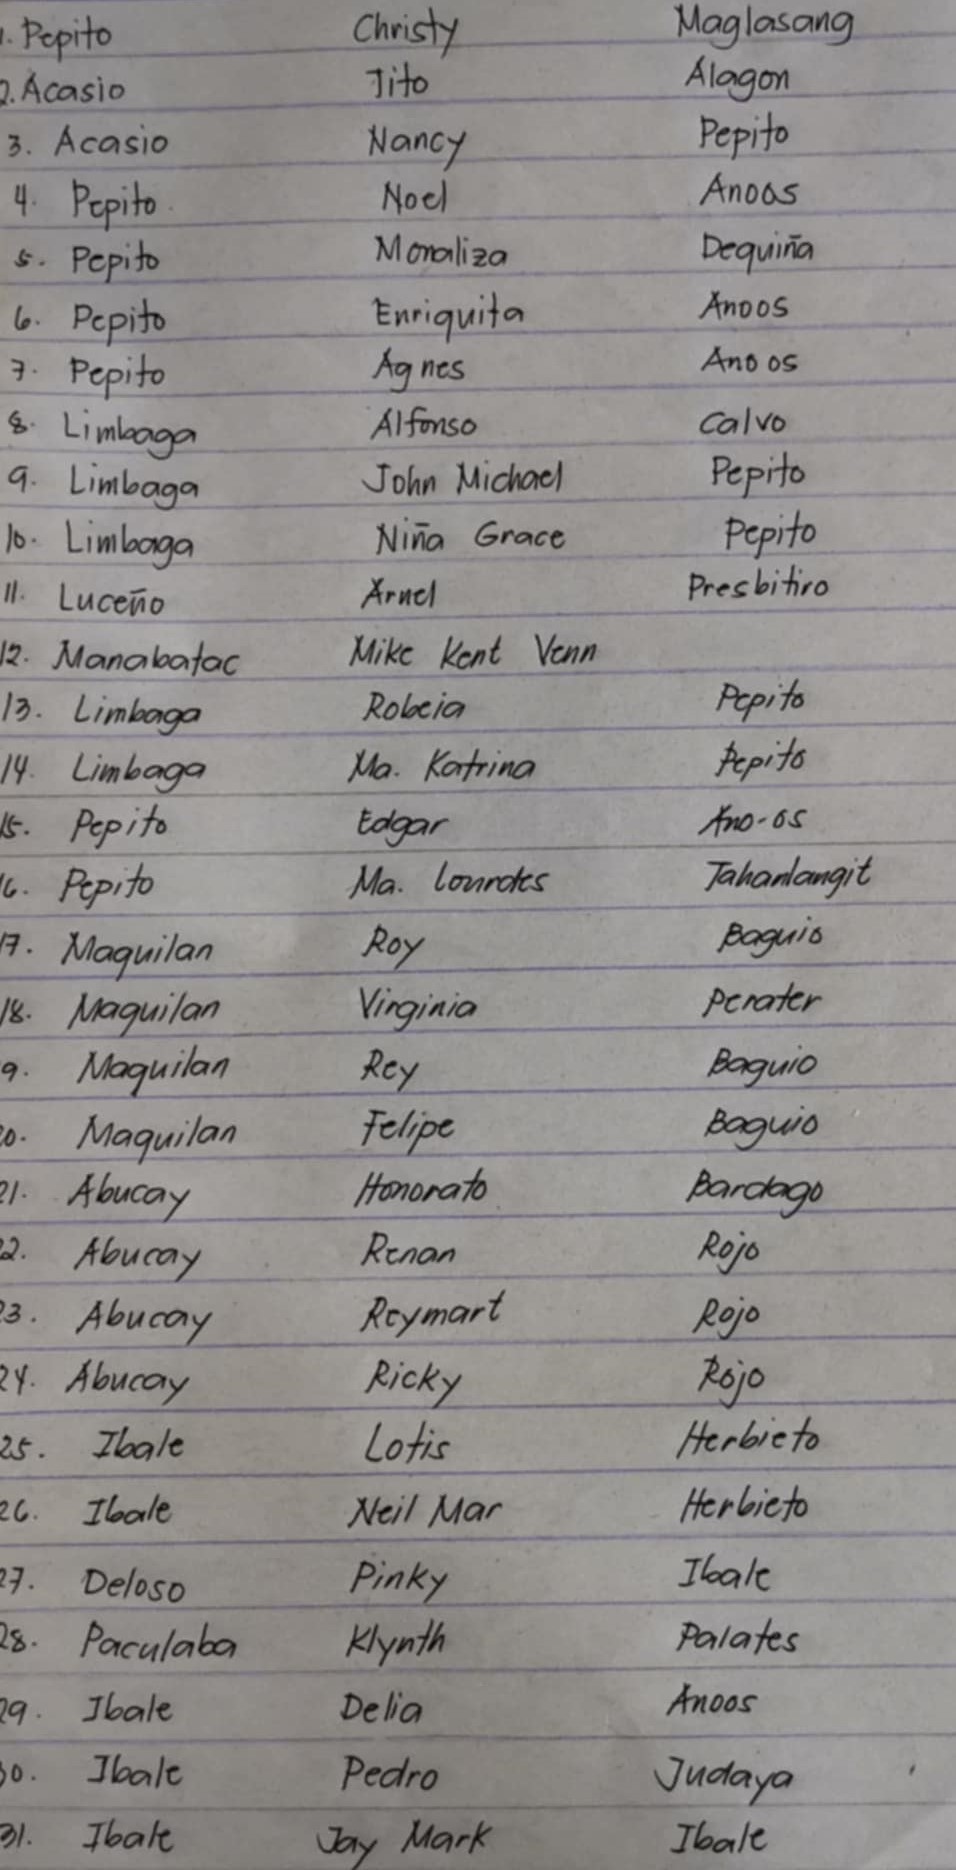 1. Pepito Christy Maglasang
2. Acasio Tito Alagon
3. Acasio Nancy Pepito
4. Pepito Noel Anoos
5. Pepito Monaliza Dequiña
6. Pepito Enriquita Anoos
7. Pepito Agnes Anoos
8. Limbaga Alfonso Calvo
9. Limbaga John Michael Pepito
10. Limbaga Niña Grace Pepito
11. Luceño Arnel Presbitiro
12. Manabatac Mike Kent Venn
13. Limbaga Robeia Pepito
14. Limbaga Ma. Katrina Pepito
15. Pepito Edgar Ano-os
16. Pepito Ma. Lourdes Tahanlangit
17. Maquilan Roy Baguio
18. Maquilan Virginia Perater
9. Maquilan Rey Baguio
0. Maquilan Felipe Baguio
21. Abucay Honorato Bardago
2. Abucay Renan Rojo
23. Abucay Reymart Rojo
24. Abucay Ricky Rojo
25. Ibale Lotis Herbieto
26. Ibale Neil Mar Herbieto
27. Deloso Pinky Ibale
28. Paculaba Klynth Palates
29. Ibale Delia Anoos
30. Ibale Pedro Judaya
31. Ibale Jay Mark Ibale